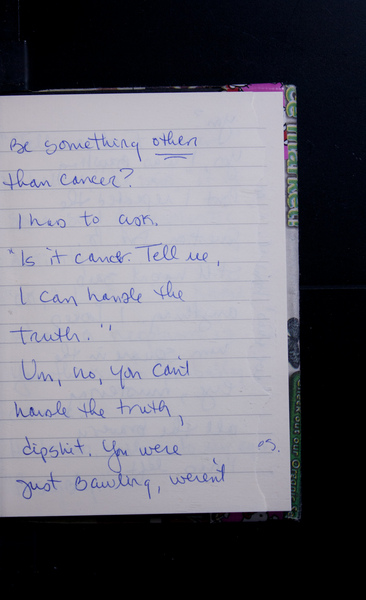 Be something other
than cancer?
I had to ask.
"Is it cancer. Tell me,
I can handle the
truth."
Um, no, you can't
handle the truth,
dipshit. You were
just bawling, weren't